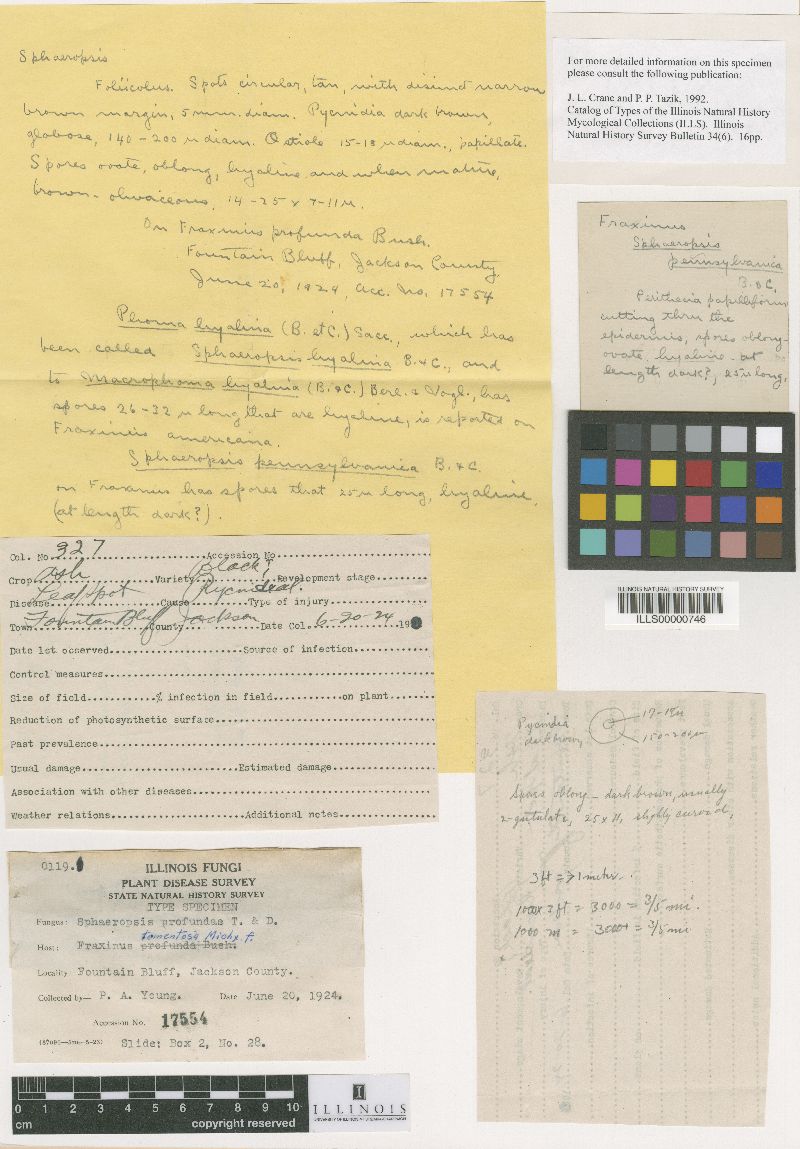 Sphaeropsis
Foliicolus. Spots circular, tan, with distinct narrow
brown margin, 5 mm. diam. Pycnidia dark brown,
globose, 140-200 u diam. Ostiole 15-18 u diam., papillate.
Spores ovate, oblong, hyaline and when mature,
brown-olivaceous, 14-25 x 7-11 u.
On Fraxinus profunda Bush.
Fountain Bluff, Jackson County.
June 20, 1924, Acc. No. 17554
Phoma hyalina (B. et C.) Sacc., which has
been called Sphaeropsis hyalina B. & C., and
to Macrophoma hyalina (B. & C.) Berl. & Vogl., has
spores 26-32 u long that are hyaline, is reported on
Fraxinus americana.
Sphaeropsis pennsylvanica B. & C.
on Fraxinus has spores that 25 u long, hyaline,
(at length dark?).
For more detailed information on this specimen
please consult the following publication:
J. L. Crane and P. P. Tazik, 1992.
Catalog of Types of the Illinois Natural History
Mycological Collections (ILLS). Illinois
Natural History Survey Bulletin 34(6). 16pp.
Fraxinus
Sphaeropsis
pennsylvanica
B. & C.
Perithecia papilliform
cutting thru the
epidermis, spores oblong-
ovate, hyaline - at
length dark?, 25 u long.
ILLINOIS NATURAL HISTORY SURVEY
ILLS00000746
Col. No. 327 Accession No.
Crop Ash Variety Black? Development stage
Disease Leaf spot Cause Pycnidial. Type of injury
Town Fountain Bluff County Jackson Date Col. 6-20-24 19
Date 1st observed Source of infection
Control measures
Size of field % infection in field on plant
Reduction of photosynthetic surface
Past prevalence
Usual damage Estimated damage
Association with other diseases
Weather relations Additional notes
Pycnidia
dark brown
17-18u
150-200u
Spores oblong - dark brown, usually
2-guttulate, 25 x 11, slightly curved,
3 ft => 1 meter.
1000 x 3 ft = 3000 = 3/5 mi.
1000 m = 3000+ = 3/5 mi
0119.
ILLINOIS FUNGI
PLANT DISEASE SURVEY
STATE NATURAL HISTORY SURVEY
TYPE SPECIMEN
Fungus: Sphaeropsis profundae T. & D.
tomentosa Michx f.
Host: Fraxinus profunda Bush.
Locality Fountain Bluff, Jackson County.
Collected by— P. A. Young. Date June 20, 1924.
Accession No. 17554
Slide: Box 2, No. 28.
0 1 2 3 4 5 6 7 8 9 10
cm copyright reserved
I
ILLINOIS